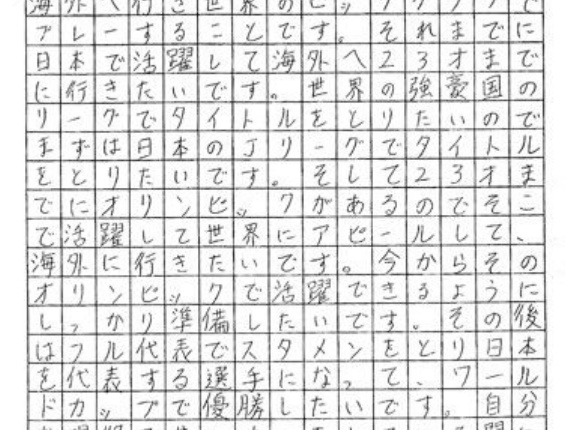 海外へ行き世界のビッグクラブで
プレーすることです。それまでに
日本で活躍して海外へ23才まで
に行きたいです。世界の強豪国の
リーグでタイトルをとりたいので
まずは日本のJリーグでタイトル
をとりたいです。そして23才ま
でにオリンピックがあるのでそこ
で活躍して世界にアピールして、
海外に行きたいです。今からその
オリンピックで活躍できるように
しっかり準備したいです。その後
はフル代表でスタメンをとり日本
を代表する選手になって、ワール
ドカップで優勝したいです。自分